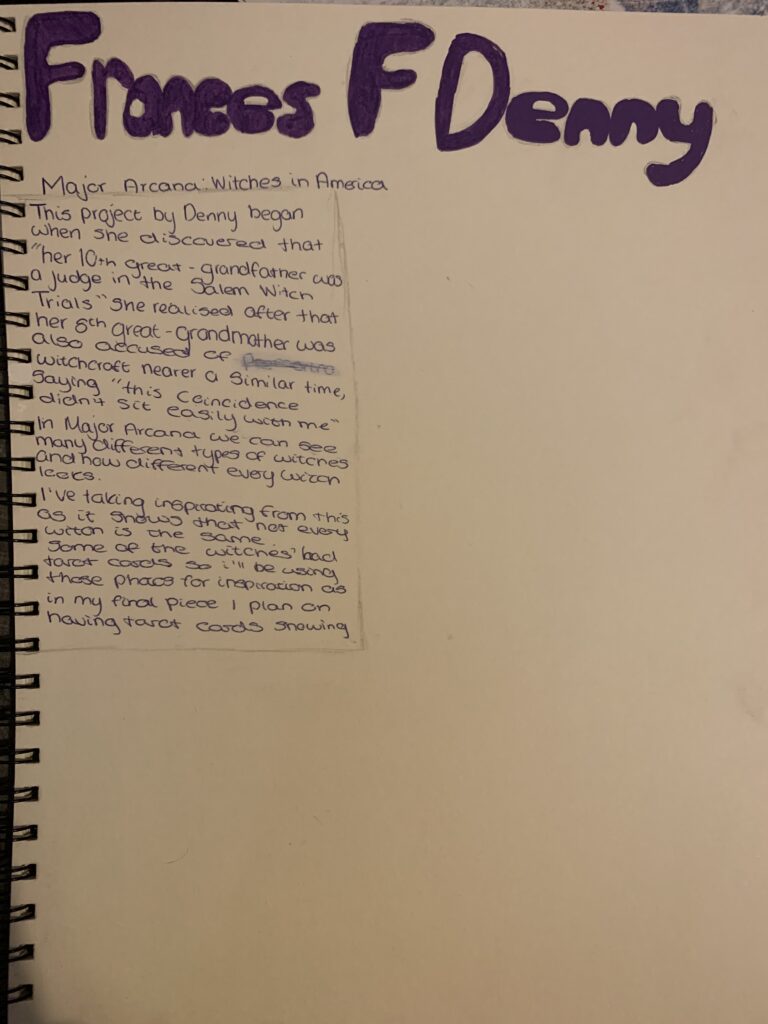 Frances F Denny
Major Arcana: Witches in America
This project by Denny began
when she discovered that
"her 10th great-grandfather was
a judge in the Salem Witch
Trials" she realised after that
her 8th great-grandmother was
also accused of
witchcraft nearer a similar time,
saying "this coincidence
didn't sit easily with me"
In Major Arcana we can see
many different types of witches
and how different every witch
looks.
I've taking inspirating from this
as it shows that not every
witch is the same.
Some of the witches' had
tarot cards so i'll be using
those photos for inspiration as
in my final piece I plan on
having tarot cards showing